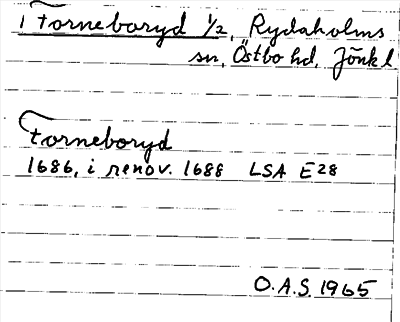 i Torneboryd 1/2, Rydaholms
sn, Östbo hd, Jönk l
Torneboryd
1686, i renov. 1688 LSA E28
O.A.S. 1965